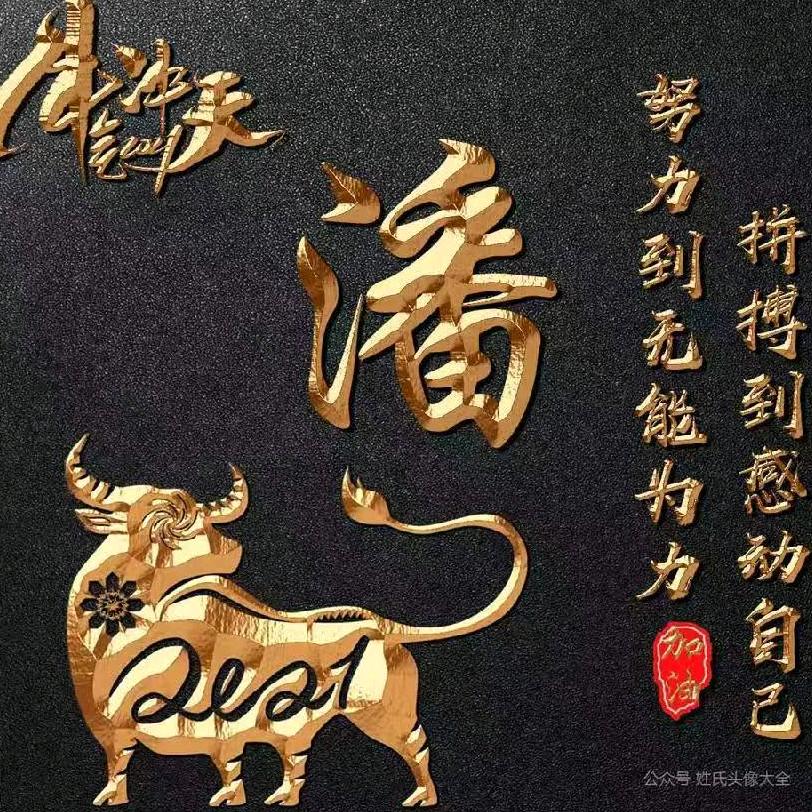 牛气冲天
潘
拼搏到感动自己
努力到无能为力
加油
2021
公众号 姓氏头像大全